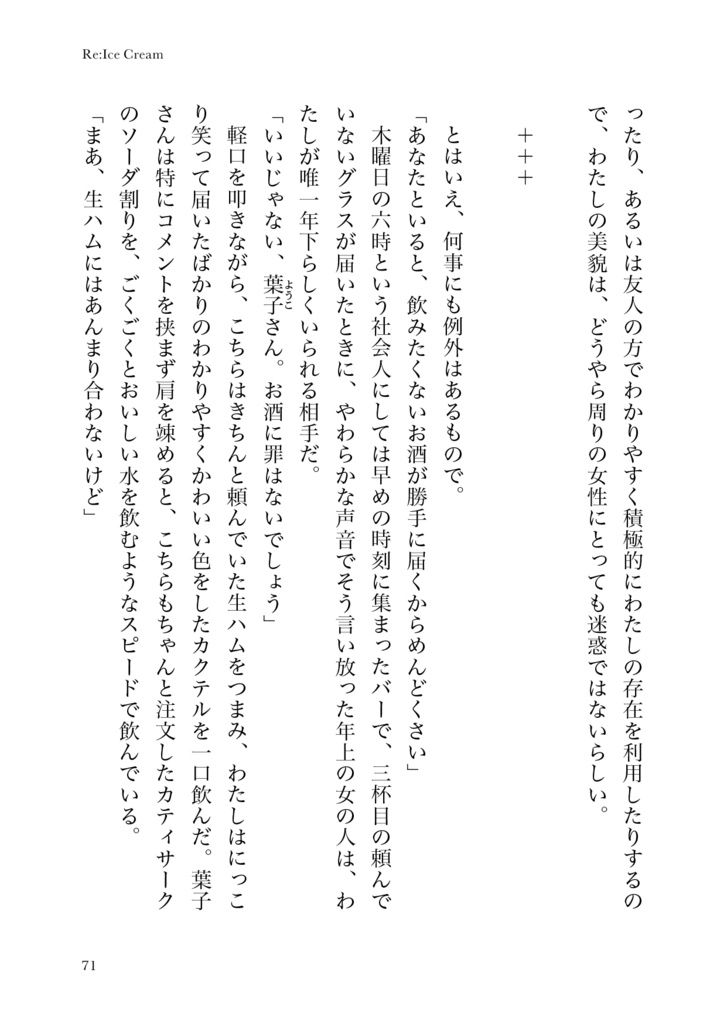 Re:Ice Cream
ったり、あるいは友人の方でわかりやすく積極的にわたしの存在を利用したりするの
で、わたしの美貌は、どうやら周りの女性にとっても迷惑ではないらしい。
＋＋＋
とはいえ、何事にも例外はあるもので。
「あなたといると、飲みたくないお酒が勝手に届くからめんどくさい」
木曜日の六時という社会人にしては早めの時刻に集まったバーで、三杯目の頼んで
いないグラスが届いたときに、やわらかな声音でそう言い放った年上の女の人は、わ
たしが唯一年下らしくいられる相手だ。
「いいじゃない、葉子さん。お酒に罪はないでしょう」
ようこ
軽口を叩きながら、こちらはきちんと頼んでいた生ハムをつまみ、わたしはにっこ
り笑って届いたばかりのわかりやすくかわいい色をしたカクテルを一口飲んだ。葉子
さんは特にコメントを挟まず肩を竦めると、こちらもちゃんと注文したカティサーク
のソーダ割りを、ごくごくとおいしい水を飲むようなスピードで飲んでいる。
「まあ、生ハムにはあんまり合わないけど」
71